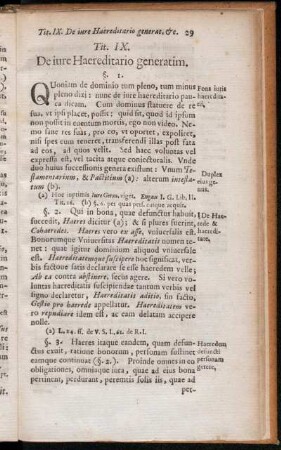 Tit. IX. De iure Haereditario generat. &c. 29
Tit. IX.
De iure Haereditario generatim.
§. 1.
QUoniam de dominio tum pleno, tum minus
pleno dixi: nunc de iure haereditario pau-
ca dicam. Cum dominus statuere de re
sua, ut ipsi placet, possit: quid sit, quod id ipsum
non possit in comitum mortis, ego non video. Ne-
mo sane res suas, pro eo, ut oportet, expoliret,
nisi spes cum teneret, transferendi illas post fata
ad eos, ad quos vellet. Sed haec voluntas vel
expressa est, vel tacita atque coniecturalis. Unde
duo huius successionis genera existunt: Unum Te-
stamentarium, & Pactitium (a): alterum intesta-
tum (b).
Fons iuris
haeredita-
rii,
Duplex
eius ge-
nus.
(a) Hoc inprimis iure Germ. viget.
Tit. (b) §. 6. per quas pers. cuique acquir.
§. 2. Qui in bona, quae defunctus habuit,
succedit, Haeres dicitur (a); & si plures fuerint,
Cohaeredes. Haeres vero ex asse, vniuersalis est.
Bonorumque Vniuersitas Haereditatis nomen te-
net: quae igitur dominium aliquod vniuersale
est. Haereditatemque suscipere hoc significat, ver-
bis factoue testato declarare se haeredem velle:
sicti ea contra abstinere, secus agere. Si vero
nudis signis declaretur, Haereditatis aditio, sin facto,
Gestio pro haerede appellatur. Haereditatem ve-
ro repudiare idem est, ac eam delatam accipere
nolle.
De Hae-
rede &
haeredi-
tate.
(a) L. 24. ff. de V. S. l. 62. de R. I.
§. 3. Haeres itaque eandem, quam defun-
ctus exuit, ratione bonorum, personam sustinet
eamque continuat (§. 2.). Proinde omnes in eo
obligationes, omniaque iura, quae ad eius bona
pertinent, perdurant, peremtis solis iis, quae ad
per-
Haeredem
defuncti
personam
gerere,